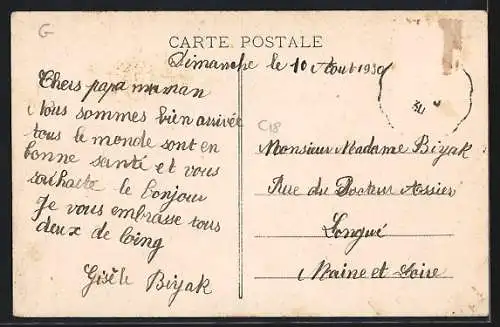 G
CARTE POSTALE
Dimanche le 10 Aout 1930
Chers papa maman
Nous sommes bien arrivée
tous le monde sont en
bonne santé et vous
souhaite le bonjour
Je vous embrasse tous
deux de loing
Gisèle Biyak
C18
Monsieur Madame Biyak
Rue du Docteur Assier
Longué
Maine et Loire
30